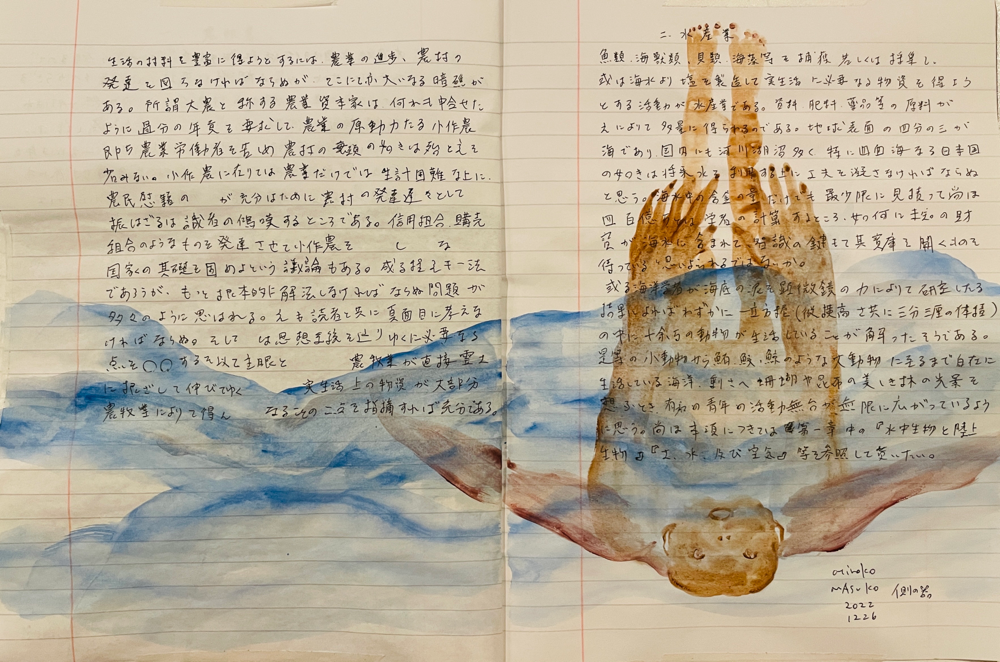 生活の材料を豊富に得ようとするには、農業の進歩、農村の
発達を図らなければならぬが、ここにしか大いなる暗礁が
ある。所謂大農と称する農業資本家は、何れも申合せた
ように過分の年貢を要求して、農業の原動力たる小作農
即ち農業労働者を苦しめ農村の
少みない。小作農に在りては農業だけでは生計困難な上に、
農民慰藉の が充分はために農村の発達遅々として
振はざるは識者の慨嘆するところである。信用組合、購売
組合のようなものを発達させて小作農を し な
国家の基礎を固めよという議論もある。或る程え一法
であろうが、もっと根本的に解決しなければならぬ問題が
多々のように思はれる。之も読者と共に真面目に考えな
ければならぬ。そして は思想系統を辿りゆくに必要なる
点を〇〇するを以て主眼と 農牧業が直接
に根ざして伸びてゆく 実生活上の物資が大部分
農牧業によりて得 なるこの二三を指摘すれば充分である。
二、水産業
魚類、海獣類、貝類、海藻等を捕獲若しくは採集し、
或は海水より塩を製造して実生活に必要なる物資を得よう
とする活動が水産業である。食料 肥料 薬品等の原料が
之によりて多量に得られるのである。地球表面の四分の三が
海であり国内にも河川湖沼多く、特に四面海なる日本国
の如きは将来水を 上に工夫を凝さなければならぬ
と思う。海水中の含金の量だけでも最少限に見積って尚ほ
四百億 学者の計算するところ、如何に 財
貨が海水に含まれて、智識の鍵もて其宝庫を開くものを
待っていると思い
或る海洋学者が海底の泥を顕微鏡の力によりて研究したる
結果によればわずかに一立方 (縦横高さ共に三分三厘の体積)
の中に十余万の動物が生活していることが解ったそうである。
の小動物から鮪、鮫、鯨のような大動物に至るまで自在に
生活している海洋、剰さへ珊瑚や昆布の美しき林の光景を
想ふとき 有為の青年の活動舞台が無限に広がっているよう
に思う。尚ほ本項につきては第一章中の『水中生物と陸上
生物』『土、水、及び空気』等を参照して貰いたい。
Mihoko
MASUKO
2022
1226